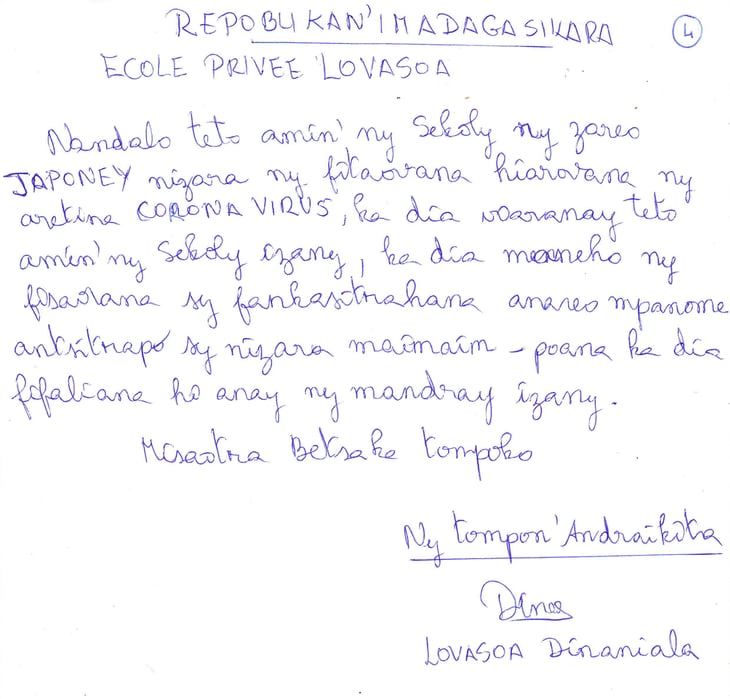 REPOBLIKAN'I MADAGASIKARA
4
ECOLE PRIVEE LOVASOA
Nandalo teto amin' ny Sekoly ny zareo
JAPONEY nizara ny fitaovana hiarovana ny
aretina CORONA VIRUS, ka dia voaranay teto
amin' ny Sekoly izany, ka dia maneho ny
fisaorana sy fankasitrahana anareo mpanome
antsitrapo sy nizara maimaim-poana ka dia
fifaliana ho anay ny mandray izany.
Misaotra Betsaka tompoko
Ny tompon'Andraikitra
Dina
LOVASOA Dinaniala